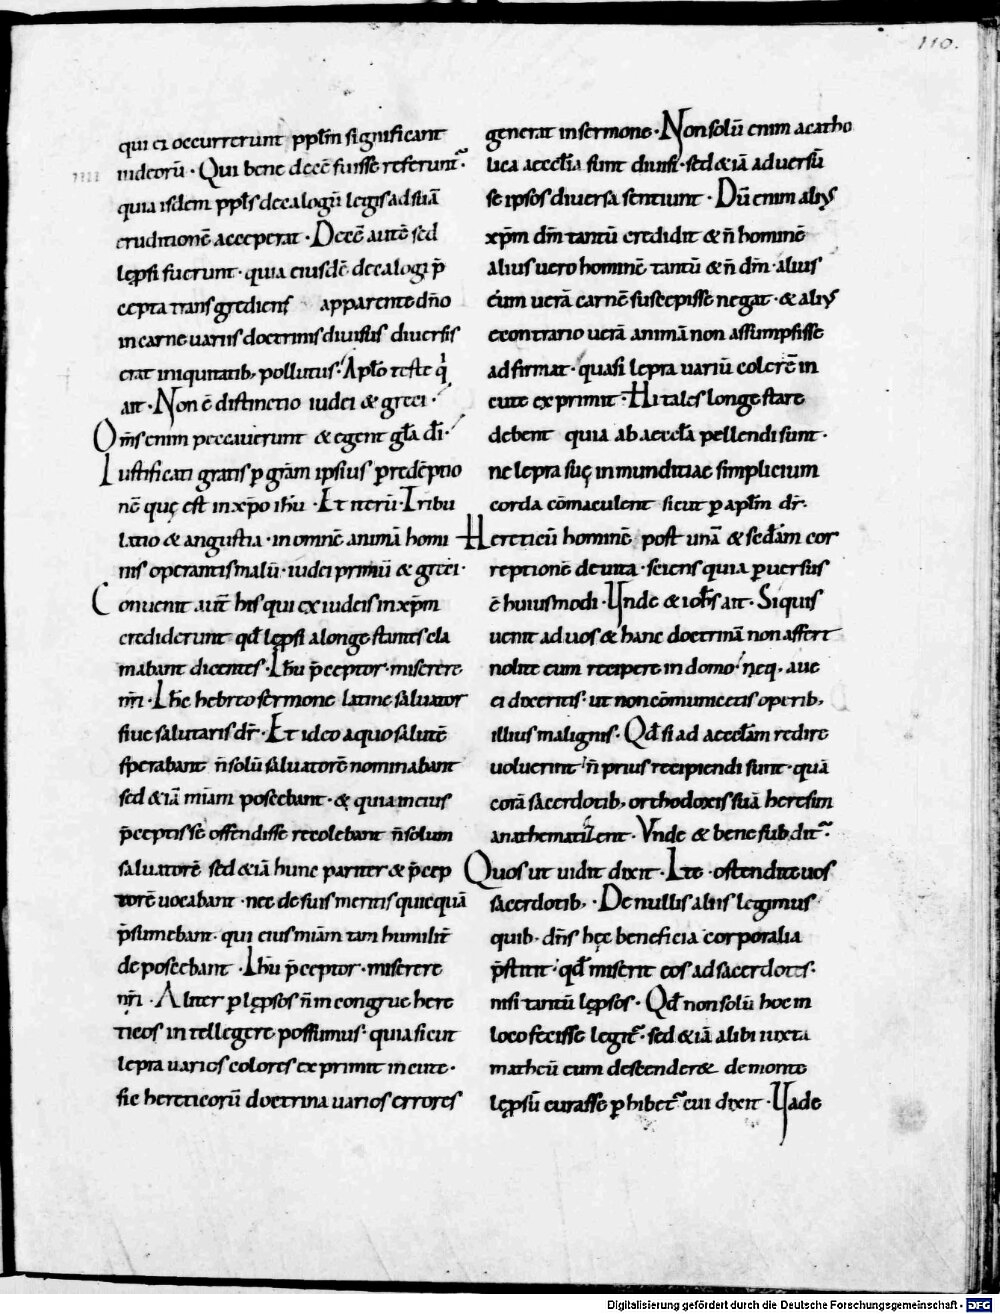 110.
qui ei occurrerunt pplm̄ significant
iudeorū · Qui bene decē fuisse referunt̃·
quia isdem ppl̄s decalogū legis ad suā
eruditionē acceperat · Decē autē sed
lęprsi fuerunt · quia eiusdē decalogi p̄
cepta transgrediens apparente dn̄o
in carne uariis doctrinis diuisus diuersis
erat iniquitatib; pollutus · Aplo teste q̇
ait · Non ē distinctio iudei & greci ·
Om̄s enim peccauerunt & egent gl̄a dī ·
Iustificati gratis p grām ipsius p redēptio
nē quę est in xp̄o ih̄u · Et iterū · Tribu
latio & angustia · in omnē animā homi
nis operantis malū · iudei primū & greci ·
Conuenit aut̄ his qui ex iudeis in xp̄m
crediderunt qd̄ lępsi a longe stantes cla
mabant dicentes · Ih̄u p̄ceptor · miserere
nr̄i · Ih̄c hebreo sermone latine saluator
siue salutaris dr̄ · Et ideo a quo salutē
sperabant n̄ solū saluatorē nominabant
sed & iā mīam poscebant · & quia in eius
p̄ceptis se offendisse recolebant n̄ solum
saluatorē sed & iā hunc pariter & p̄cep
torē uocabant · nec de suis meritis quicquā
p̄sumebant · qui eius mīam tam humilit̄
deposcebant · Ih̄u p̄ceptor · miserere
nr̄i · Aliter p lępsos n̄ incongrue here
ticos intellegere possumus · quia sicut
lepra uarios colores exprimit in cute ·
sic hereticorū doctrina uarios errores
generat in sermone · Non solū enim a catho
lica aeccl̄ia sunt diuisi · sed & iā aduersū
se ipsos diuersa sentiunt · Dū enim aliꝰ
xp̄m dm̄ tantū credidit & n̄ hominē
alius uero hominē tantū & n̄ dm̄ · alius
eum uerā carnē suscepisse negat · & aliꝰ
econtrario uerā animā non assumpsisse
adfirmat · quasi lepra uariū colorē in
cute exprimit · Hi tales longe stare
debent quia ab aeccl̄a pellendi sunt ·
ne lepra suę inmunditiae simplicium
corda cōmaculent sicut p aplm̄ dr̄ ·
Hereticū hominē post unā & sedām cor
reptionē deuita · sciens quia puersus
ē huiusmodi · Vnde & ioh̄s ait · Si quis
uenit ad uos & hanc doctrinā non affert
nolite eum recipere in domo · neq; aue
ei dixeritis · ut non cōmunicetis operib;
illius malignis · Qd̄ si ad aeccl̄am redire
uoluerint · n̄ prius recipiendi sunt · quā
corā sacerdotib; orthodoxis suā heresim
anathematizent · Vnde & bene subdit̃·
Quos ut uidit dixit · Ite ostendite uos
sacerdotib; · De nullis aliis legimus
quib · dn̄s hęc beneficia corporalia
p̄stitit · qd̄ miserit eos ad sacerdotes ·
nisi tantū lępsos · Qd̄ non solū hoc in
loco fecisse legit̃ · sed & iā alibi iuxta
matheū cum descender& de monte
lępsū curasse phibet̃ cui dixit · Vade
Digitalisierung gefördert durch die Deutsche Forschungsgemeinschaft - DFG